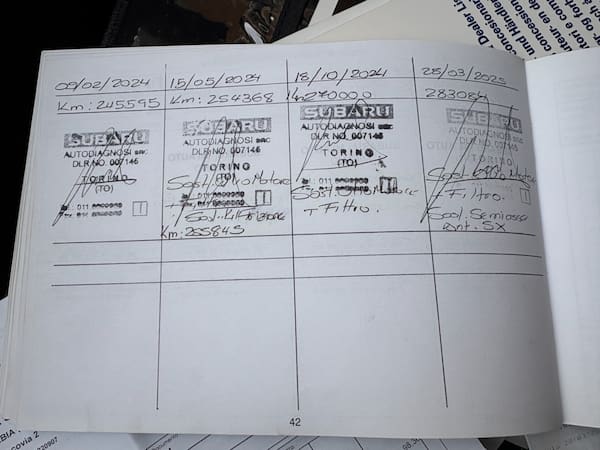 Dealer Li
Concessionari
concession
und Händler
09/02/2024
15/05/2024
18/10/2024
25/03/2025
Km: 245595
Km: 254368
270000
283084
SUBARU
AUTODIAGNOSI snc
DLR NO. 007146
TORINO
(TO)
SUBARU
AUTODIAGNOSI snc
DLR NO. 007146
TORINO
Sost. Olio Motore
+ Filtro
Sost. Kit Frizione
Km: 255845
SUBARU
AUTODIAGNOSI snc
DLR NO. 007146
TORINO
(TO)
Sost. Olio Motore
+ Filtro.
SUBARU
AUTODIAGNOSI
DLR NO. 007146
TORINO
Sost. Olio Motore
+ Filtro.
Sost. Semiasse
Ant. SX
42
covia 2
220907